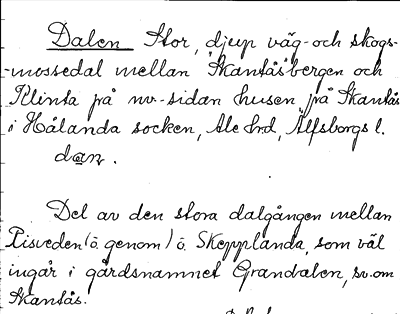 Dalen Stor, djup väg- och skogs-
-mossedal mellan Skantåsbergen och
Klinta på nv.-sidan husen, på Skantås
i Hålanda socken, Ale hrd, Älfsborgs l.
dan.
Del av den stora dalgången mellan
Risveden (ö. genom) ö. Skepplanda, som väl
ingår i gårdsnamnet Grandalen, sv. om
Skantås.